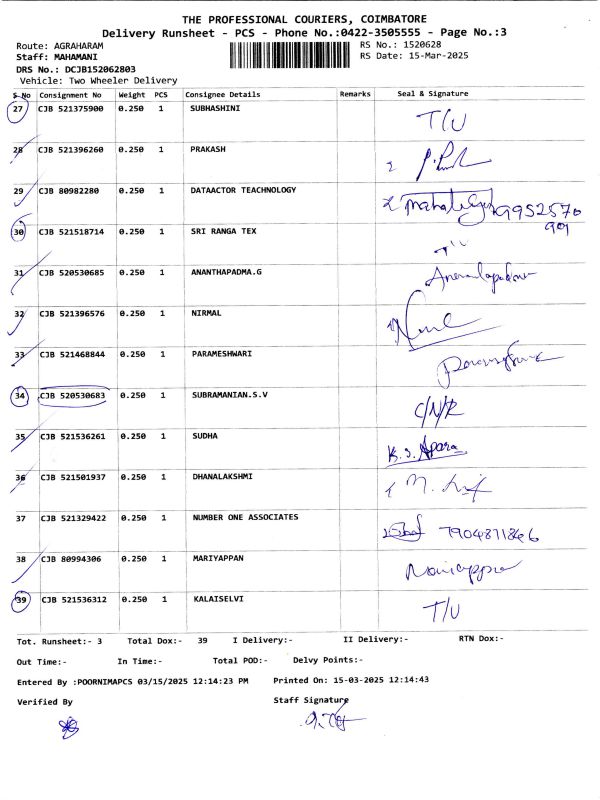 THE PROFESSIONAL COURIERS, COIMBATORE
Delivery Runsheet - PCS - Phone No.:0422-3505555 - Page No.:3
Route: AGRAHARAM
RS No.: 1520628
Staff: MAHAMANI
RS Date: 15-Mar-2025
DRS No.: DCJB152062803
Vehicle: Two Wheeler Delivery
S No Consignment No Weight PCS Consignee Details Remarks Seal & Signature
27 CJB 521375900 0.250 1 SUBHASHINI T/U
28 CJB 521396260 0.250 1 PRAKASH
29 CJB 80982280 0.250 1 DATAACTOR TEACHNOLOGY 9952570
901
30 CJB 521518714 0.250 1 SRI RANGA TEX T/U
31 CJB 520530685 0.250 1 ANANTHAPADMA.G
32 CJB 521396576 0.250 1 NIRMAL
33 CJB 521468844 0.250 1 PARAMESHWARI
34 CJB 520530683 0.250 1 SUBRAMANIAN.S.V C/N/R
35 CJB 521536261 0.250 1 SUDHA
36 CJB 521501937 0.250 1 DHANALAKSHMI
37 CJB 521329422 0.250 1 NUMBER ONE ASSOCIATES 7904871846
38 CJB 80994306 0.250 1 MARIYAPPAN
39 CJB 521536312 0.250 1 KALAISELVI T/U
Tot. Runsheet:- 3 Total Dox:- 39 I Delivery:- II Delivery:- RTN Dox:-
Out Time:- In Time:- Total POD:- Delvy Points:-
Entered By :POORNIMAPCS 03/15/2025 12:14:23 PM Printed On: 15-03-2025 12:14:43
Verified By Staff Signature